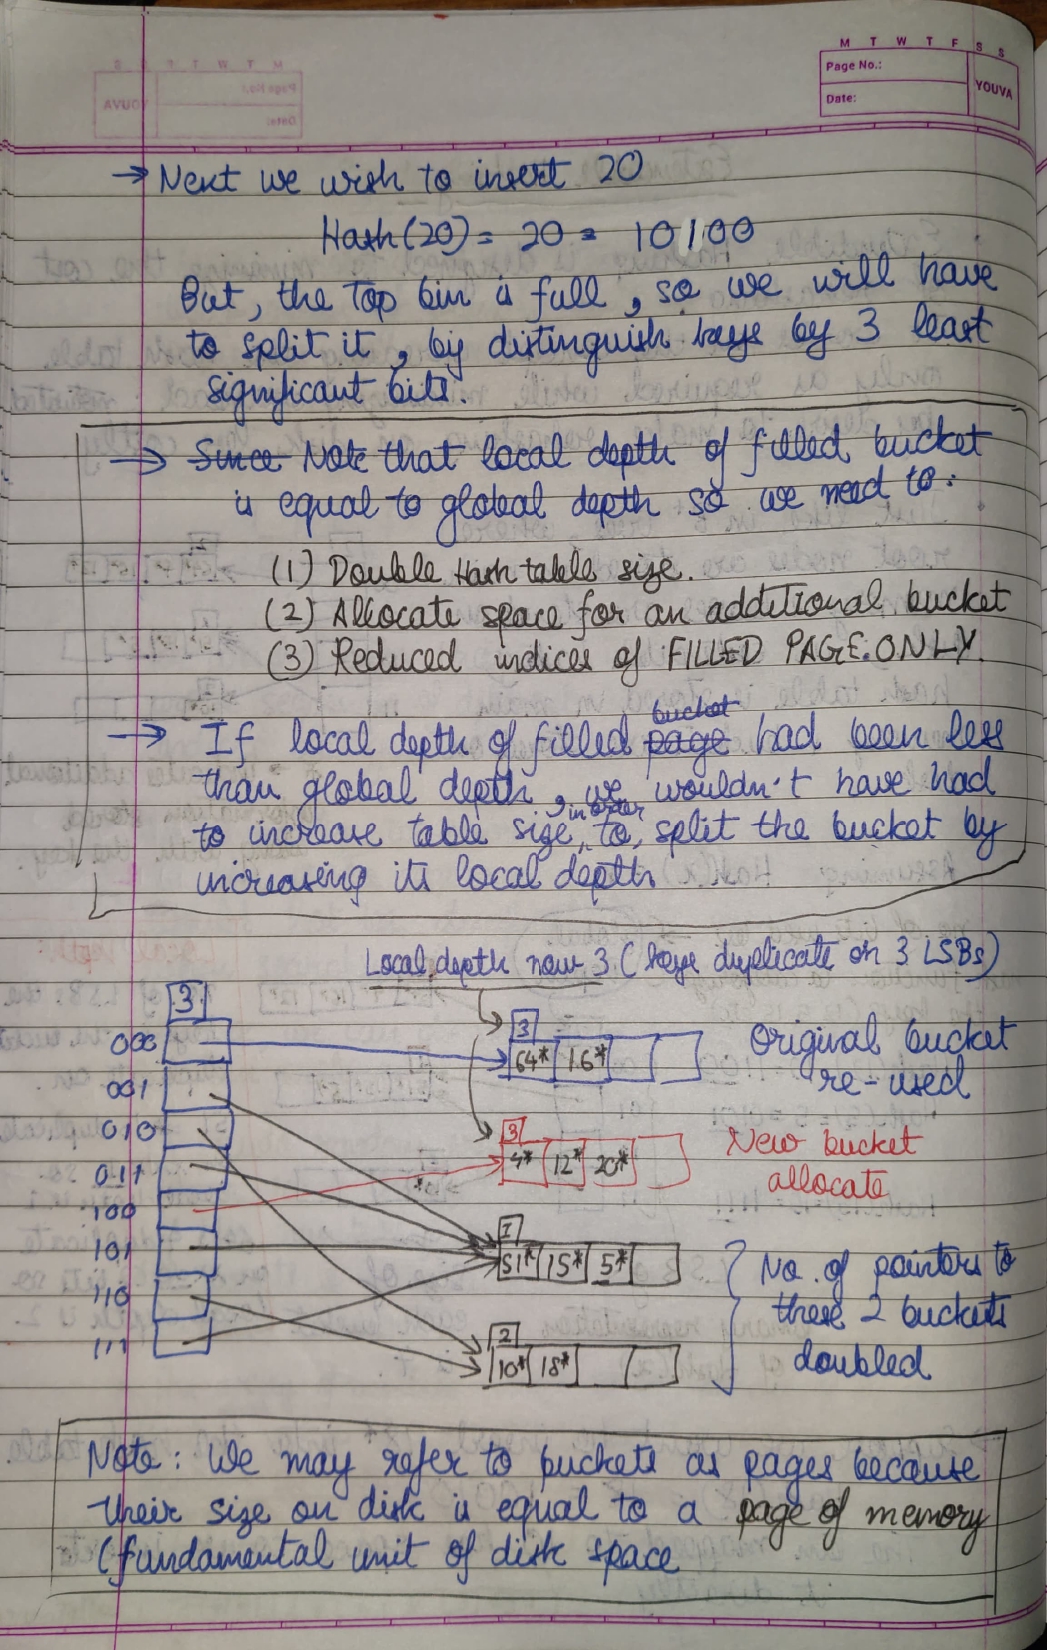 M T W T F S S
Page No.:
Date:
YOUVA
→ Next we wish to insert 20
Hash(20) = 20 = 10100
But, the top bin is full, so we will have
to split it, by distinguish keys by 3 least
significant bits.
→ Since Note that local depth of filled bucket
is equal to global depth so we need to:
(1) Double Hash table size.
(2) Allocate space for an additional bucket
(3) Reduced indices of FILLED PAGE ONLY.
→ If local depth of filled page bucket had been less
than global depth, we wouldn't have had
to increase table size, in order to, split the bucket by
increasing its local depth
Local depth now 3 (keys duplicate on 3 LSBs)
3
000
001
010
011
100
101
110
111
3
64* 16*
Original bucket
re-used
3
4* 12* 20*
New bucket
allocate
1
51* 15* 5*
2
10* 18*
No. of pointers to
these 2 buckets
doubled
Note: We may refer to buckets as pages because
their size on disk is equal to a page of memory
(fundamental unit of disk space